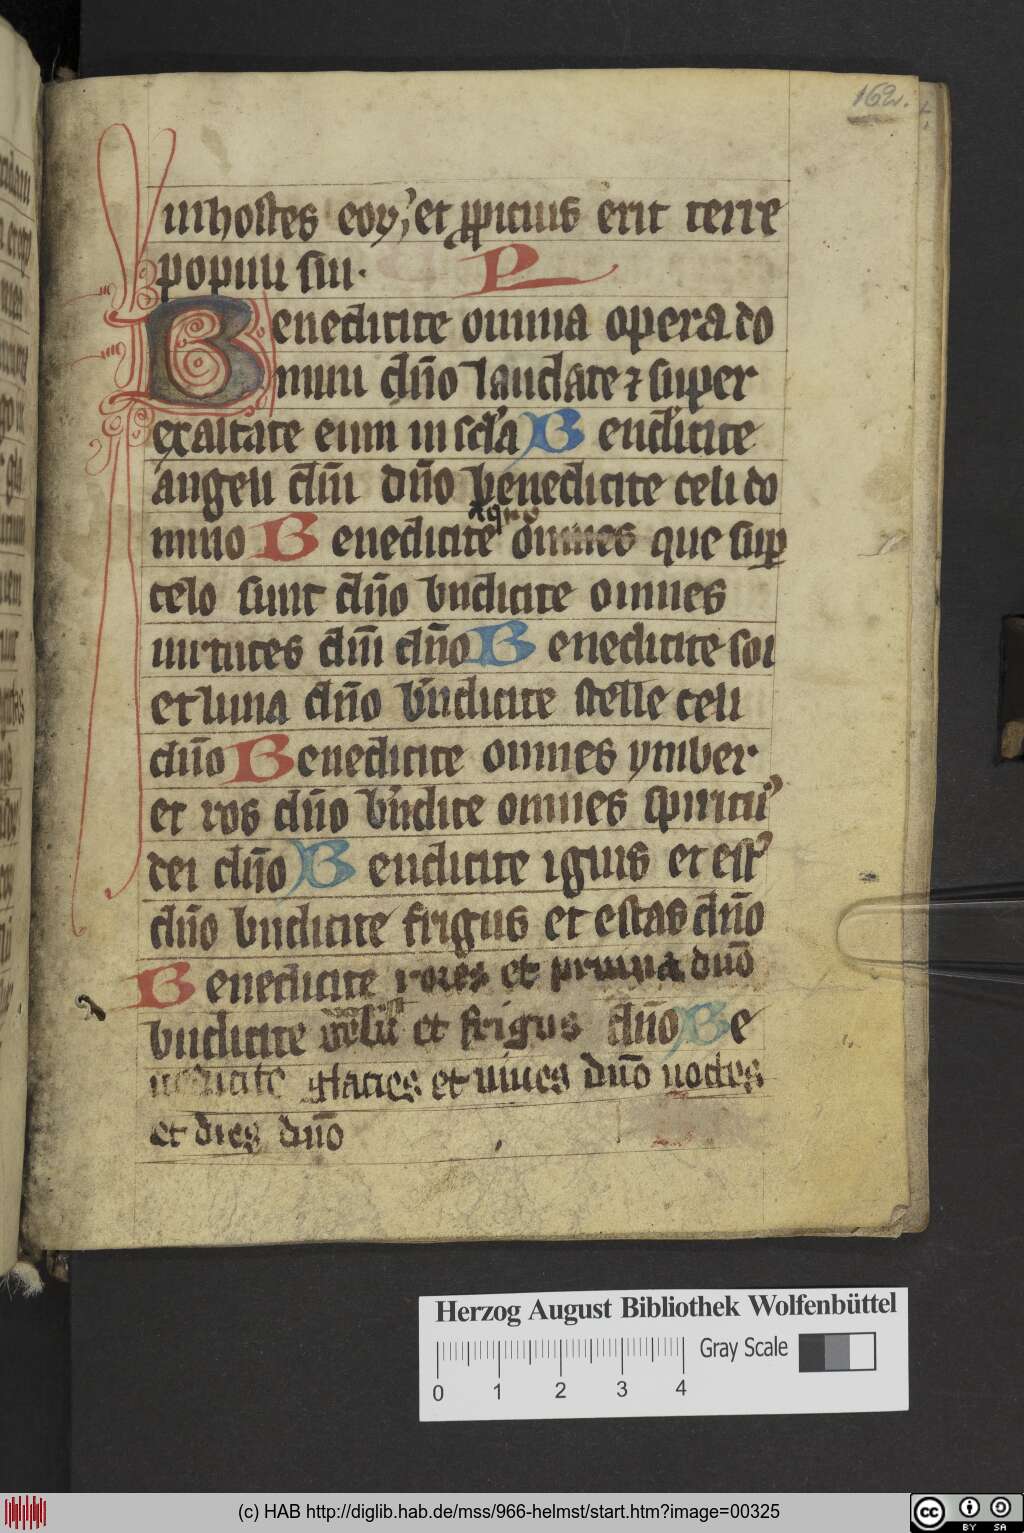 162.
in hostes eoꝝ, et ꝓpitius erit terre
populi sui. P
Benedicite omnia opera do
mini dño laudate ⁊ super
exaltate eum in scl̃a Bendicite
angeli dñi dño benedicite celi do
aque
mino Benedicite omnes que suꝑ
celo sunt dño bn̄dicite omnes
uirtutes dñi dño Benedicite sol
et luna dño bn̄dicite stelle celi
dño Benedicite omnes ymber
et ros dño bn̄dite omnes spirituꝰ
dei dño Bendicite ignis et estꝰ
dño bndicite frigus et estas dño
Benedicite rores et pruina dño
bndicite et frigus dño Be
glacies et niues dño noctes
et dies dño
Herzog August Bibliothek Wolfenbüttel
Gray Scale
0 1 2 3 4
(c) HAB http://diglib.hab.de/mss/966-helmst/start.htm?image=00325
cc BY SA